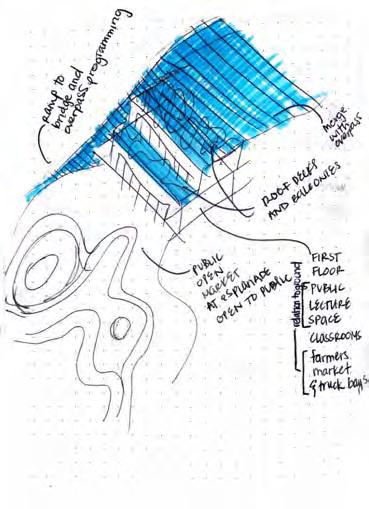 ramp to
bridge and
overpass programming
merge
with
overpass
ROOF DECKS
AND BALCONIES
PUBLIC
OPEN
MARKET
AT ESPLANADE
OPEN TO PUBLIC
FIRST
FLOOR
PUBLIC
LECTURE
SPACE
CLASSROOMS
farmers
market
& truck bays